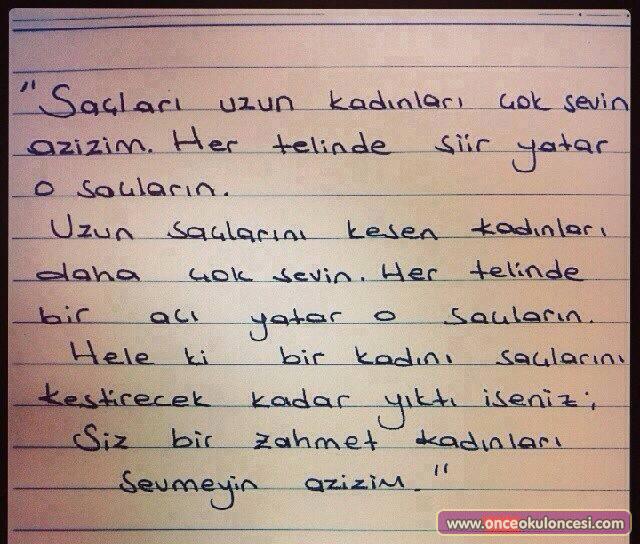 "Saçları uzun kadınları çok sevin
azizim. Her telinde şiir yatar
o saçların.
Uzun saçlarını kesen kadınları
daha çok sevin. Her telinde
bir acı yatar o saçların.
Hele ki bir kadını saçlarını
kestirecek kadar yıktı iseniz;
Siz bir zahmet kadınları
sevmeyin azizim."
www.onceokuloncesi.com